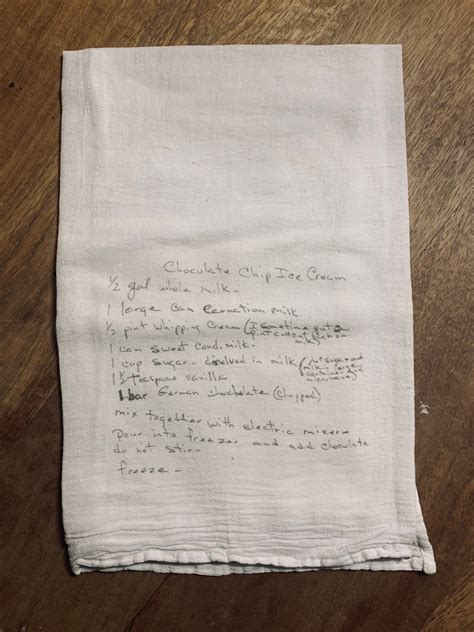 Choculate Chip Ice Cream
½ gal whole milk -
1 large can Carnation milk
½ pint whipping cream (I sometime put a
pint and cut back on
milk)
1 can sweet cond. milk -
1 cup sugar - disolved in milk (put sugar and
milk in large
container in
microwave)
1½ teaspoons vanilla
1 bar German choclate (chopped)
mix together with electric mixer -
Pour into freezer and add choclate
do not stir -
freeze -